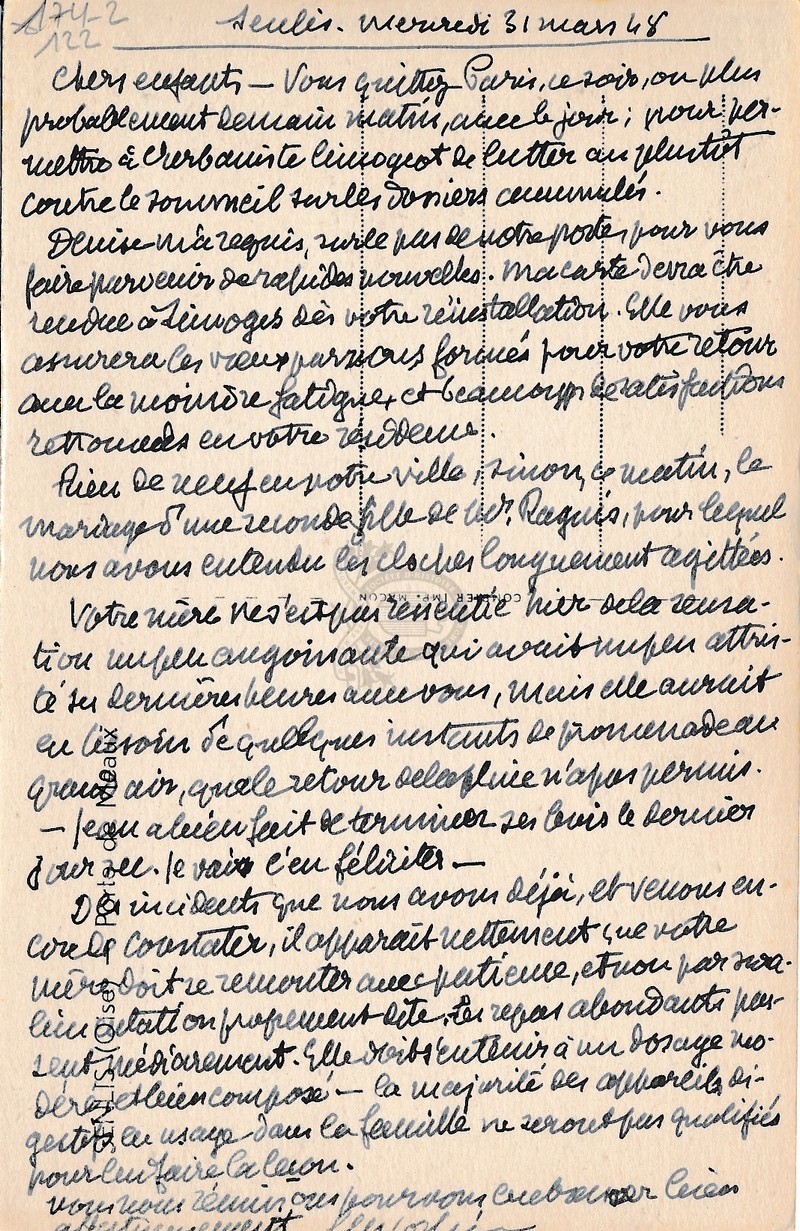 174-2
122
Senlis. mercredi 31 mars 48
Chers enfants — Vous quittez Paris, ce soir, ou plus
probablement demain matin, avec le jour ; pour per-
mettre à l'urbaniste limogeot de lutter au plus tôt
contre le sommeil sur les dossiers accumulés.
Denise m'a requis, sur le pas de notre porte, pour vous
faire parvenir de rapides nouvelles. Ma carte devra être
rendue à Limoges dès votre réinstallation. Elle vous
assurera les vœux par nous formés pour votre retour
avec la moindre fatigue, et beaucoup de satisfactions
retrouvées en votre résidence.
Rien de neuf en votre ville, sinon, ce matin, le
mariage d'une seconde fille de Mr. Raguis, pour lequel
nous avons entendu les cloches longuement agitées.
Votre mère ne s'est pas ressentie hier de la sensa-
tion un peu angoissante qui avait un peu attris-
té ses dernières heures avec vous, mais elle aurait
eu besoin de quelques instants de promenade au
grand air, que le retour de la pluie n'a pas permis.
— Jean a bien fait de terminer ses bois le dernier
jour sec. Je vais l'en féliciter —
Des incidents que nous avons déjà, et venons en-
core de constater, il apparaît nettement que votre
mère doit se remonter avec patience, et non par sura-
limentation proprement dite. Les repas abondants pas-
sent médiocrement. Elle doit s'en tenir à un dosage mo-
déré et bien composé — la majorité des appareils di-
gestifs en usage dans la famille ne seront pas qualifiés
pour lui faire la leçon.
vous nous réunissons pour vous embrasser bien
affectueusement
COMBIER IMP. MACON
SENLIS (Oise) Porte de Meaux